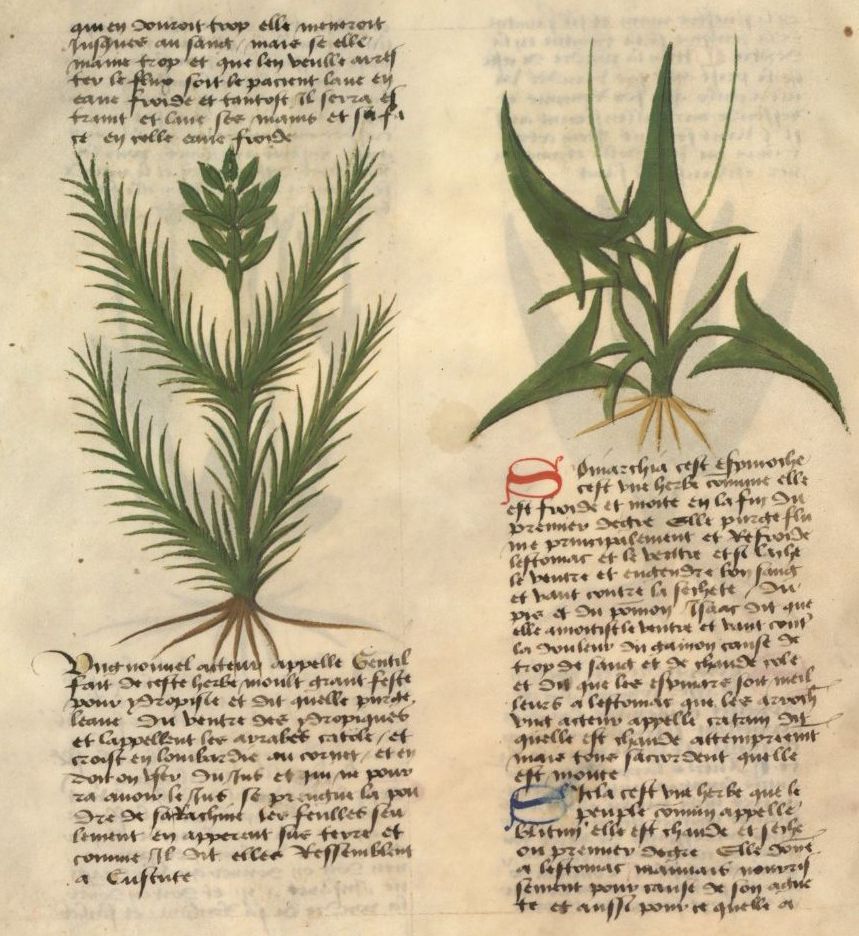 qui en donroit trop elle menroit
Jusques au sang / mais se elle
maine trop et que len veulle arres
ter le flux soit le pacient laue en
eaue froide et tantost Il serra es
traint et laue ses mains et sa fa
ce en celle eaue froide
Ung nouuel acteur appelle Gentil
fait de ceste herbe moult grant feste
pour ydropisie et dit quelle purge
leaue du ventre des ydropiques
et lappellent les arrabes / et
croist en lombardie au / et en
doit on vser du Jus et qui ne pour
ra auoir le Jus se prengne la pou
dre de sa Rachine les feulles seu
lement en apperent sus terre et
comme Il dit elles Ressemblent
a Cuscute
Spinarchia cest espinoche
cest vne herbe comme elle
est froide et moite en la fin du
premier degre Elle purge flu
me principalement et Refroide
lestomac et le ventre et si lache
le ventre et engendre bon sang
et vaut contre la secheté du
pis et du pomon Isaac dit que
elle amoitist le ventre et vaut cont
la douleur du cause de
trop de sang et de chaude cole
et dit que les espinars sont meil
leurs a lestomac que les
vng acteur appelle dit
quelle est chaude attempreement
mais tous sacordent quelle
est moite
Sicla cest vne herbe que le
peuple comun appelle
blitum elle est chaude et seche
ou premier degre Elle done
a lestomac mauuais nourris
sement pour cause de son ague
te et aussi pour ce quelle a